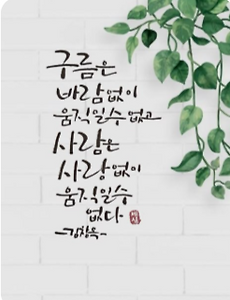 구름은
바람 없이
움직일 수 없고
사람은
사랑 없이
움직일 수
없다
-김창옥-